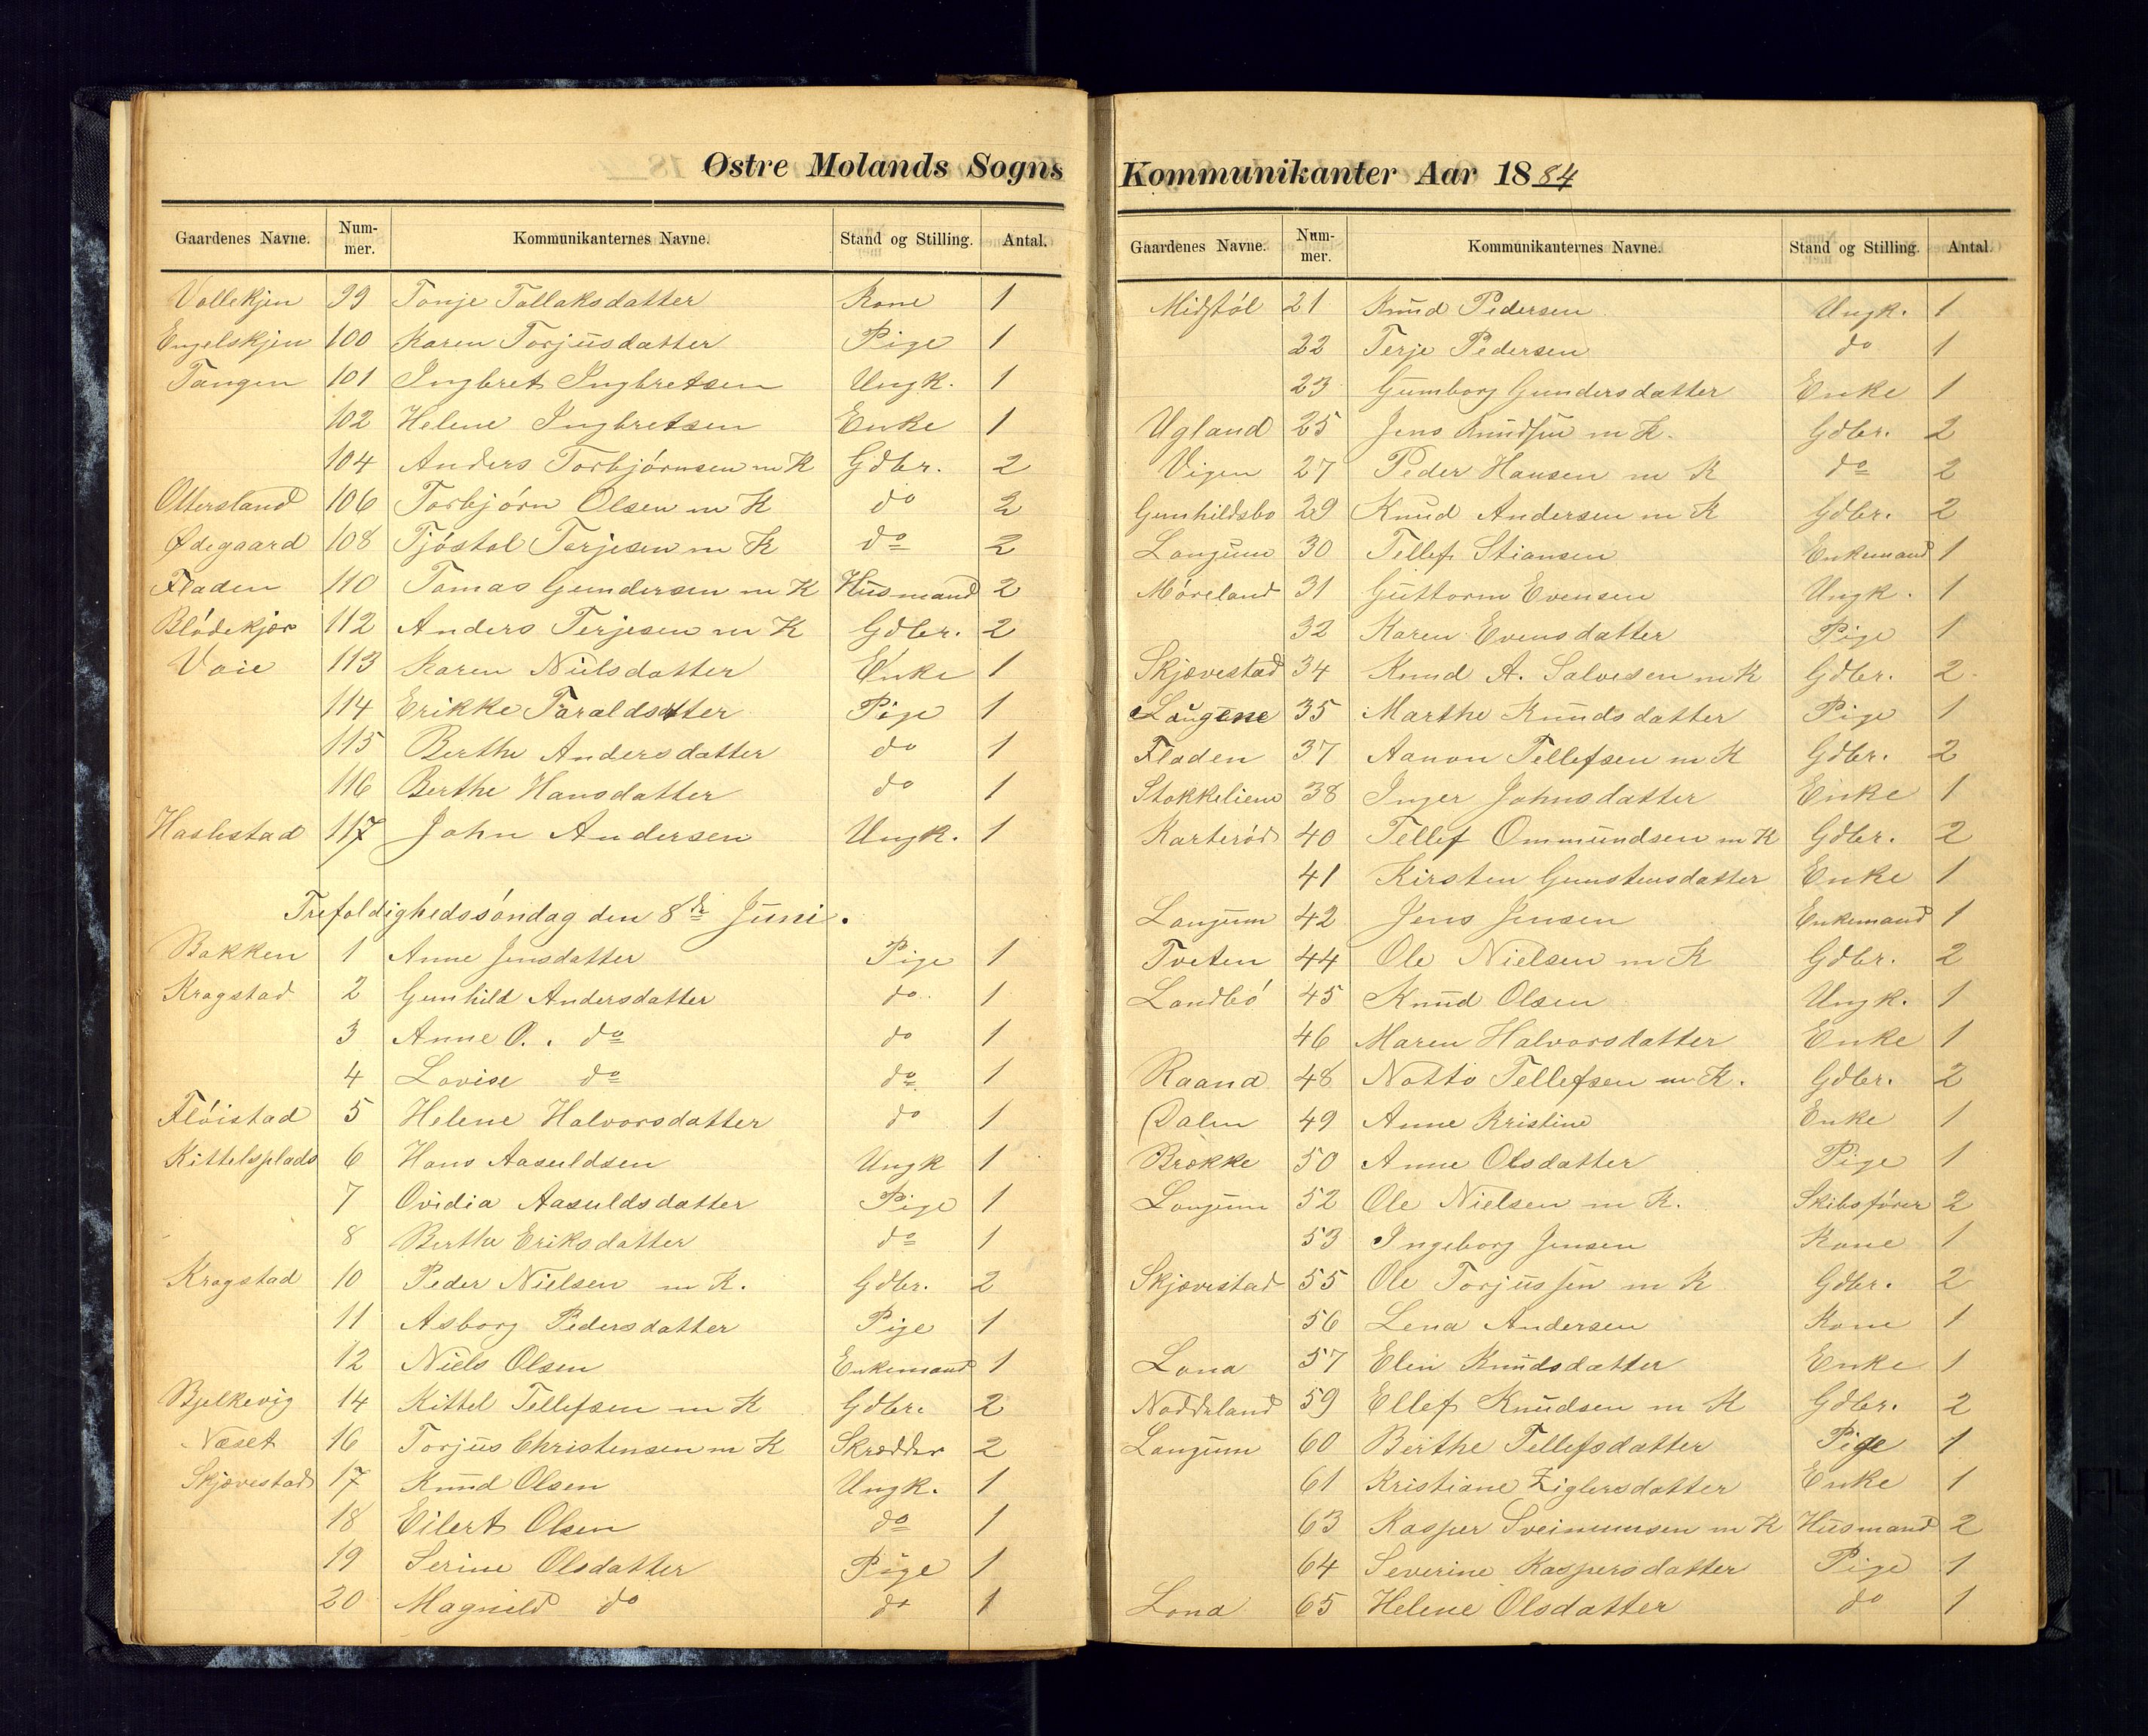 Østre Molands Sogns
Gaardenes Navne. Nummer. Kommunikanternes Navne. Stand og Stilling. Antal.
Vollekjen 99 Tonje Tollaksdatter Kone 1
Engelskjen 100 Karen Torjusdatter Pige 1
Tangen 101 Ingbret Ingbretsen Ungk. 1
102 Helene Ingbretsen Enke 1
104 Anders Torbjörnsen m K Gdbr. 2
Otterstand 106 Torbjörn Olsen m K do 2
Ødegaard 108 Tjöstol Torjesen m K do 2
Fladen 110 Tomas Gundersen m K Husmand 2
Blödekjær 112 Anders Terjesen m K Gdbr. 2
Vaie 113 Karen Nielsdatter Enke 1
114 Erikke Taraldsdatter Pige 1
115 Berthe Andersdatter do 1
116 Berthe Hansdatter do 1
Haslestad 117 John Andersen Ungk. 1
Trefoldighedssöndag den 8de Juni.
Bakken 1 Anne Jensdatter Pige 1
Kragstad 2 Gunhild Andersdatter do 1
3 Anne O. do do 1
4 Lovise do do 1
Flöistad 5 Helene Halvorsdatter do 1
Kittelsplads 6 Hans Aasuldsen Ungk 1
7 Ovidia Aasuldsdatter Pige 1
8 Berthe Eriksdatter do 1
Kragstad 10 Peder Nielsen m K. Gdbr. 2
11 Asborg Pedersdatter Pige 1
12 Niels Olsen Enkemand 1
Bjelkevig 14 Kittel Tellefsen m K Gdbr. 2
Næset 16 Torjus Christensen m K Skrædder 2
Skjævestad 17 Knud Olsen Ungk. 1
18 Eilert Olsen do 1
19 Serine Olsdatter Pige 1
20 Magnild do do 1
Kommunikanter Aar 1884
Gaardenes Navne. Nummer. Kommunikanternes Navne. Stand og Stilling. Antal.
Midtböl 21 Knud Pedersen Ungk. 1
22 Terje Pedersen do 1
23 Gumborg Gundersdatter Enke 1
Ugland 25 Jens Knudsen m K. Gdbr. 2
Vigen 27 Peder Hansen m K do 2
Gunhildsbo 29 Knud Andersen m K Gdbr. 2
Langum 30 Tellef Stiansen Enkemand 1
Möreland 31 Guttorm Evensen Ungk. 1
32 Karen Evensdatter Pige 1
Skjævestad 34 Knud A. Salvesen m K Gdbr. 2
35 Marthe Knudsdatter Pige 1
Fladen 37 Aanon Tellefsen m K Gdbr. 2
Stokkeliene 38 Inger Johnsdatter Enke 1
Karteröd 40 Tellef Ommundsen m K Gdbr. 2
41 Kirsten Gunstensdatter Enke 1
Langum 42 Jens Jensen Enkemand 1
Tveten 44 Ole Nielsen m K Gdbr. 2
Landbö 45 Knud Olsen Ungk. 1
46 Maren Halvorsdatter Enke 1
Raand 48 Notto Tellefsen m K. Gdbr. 2
Dalen 49 Anne Kristine Enke 1
Brække 50 Anne Olsdatter Pige 1
Langum 52 Ole Nielsen m K. Skibsförer 2
53 Ingeborg Jensen Kone 1
Skjævestad 55 Ole Torjussen m K Gdbr. 2
56 Lena Andersen Kone 1
Lona 57 Elen Knudsdatter Enke 1
Noddeland 59 Ellef Knudsen m K Gdbr. 2
Langum 60 Berthe Tellefsdatter Pige 1
61 Kristiane Ziglersdatter Enke 1
63 Kasper Sveinumsen m K Husmand 2
64 Severine Kaspersdatter Pige 1
Lona 65 Helene Olsdatter do 1